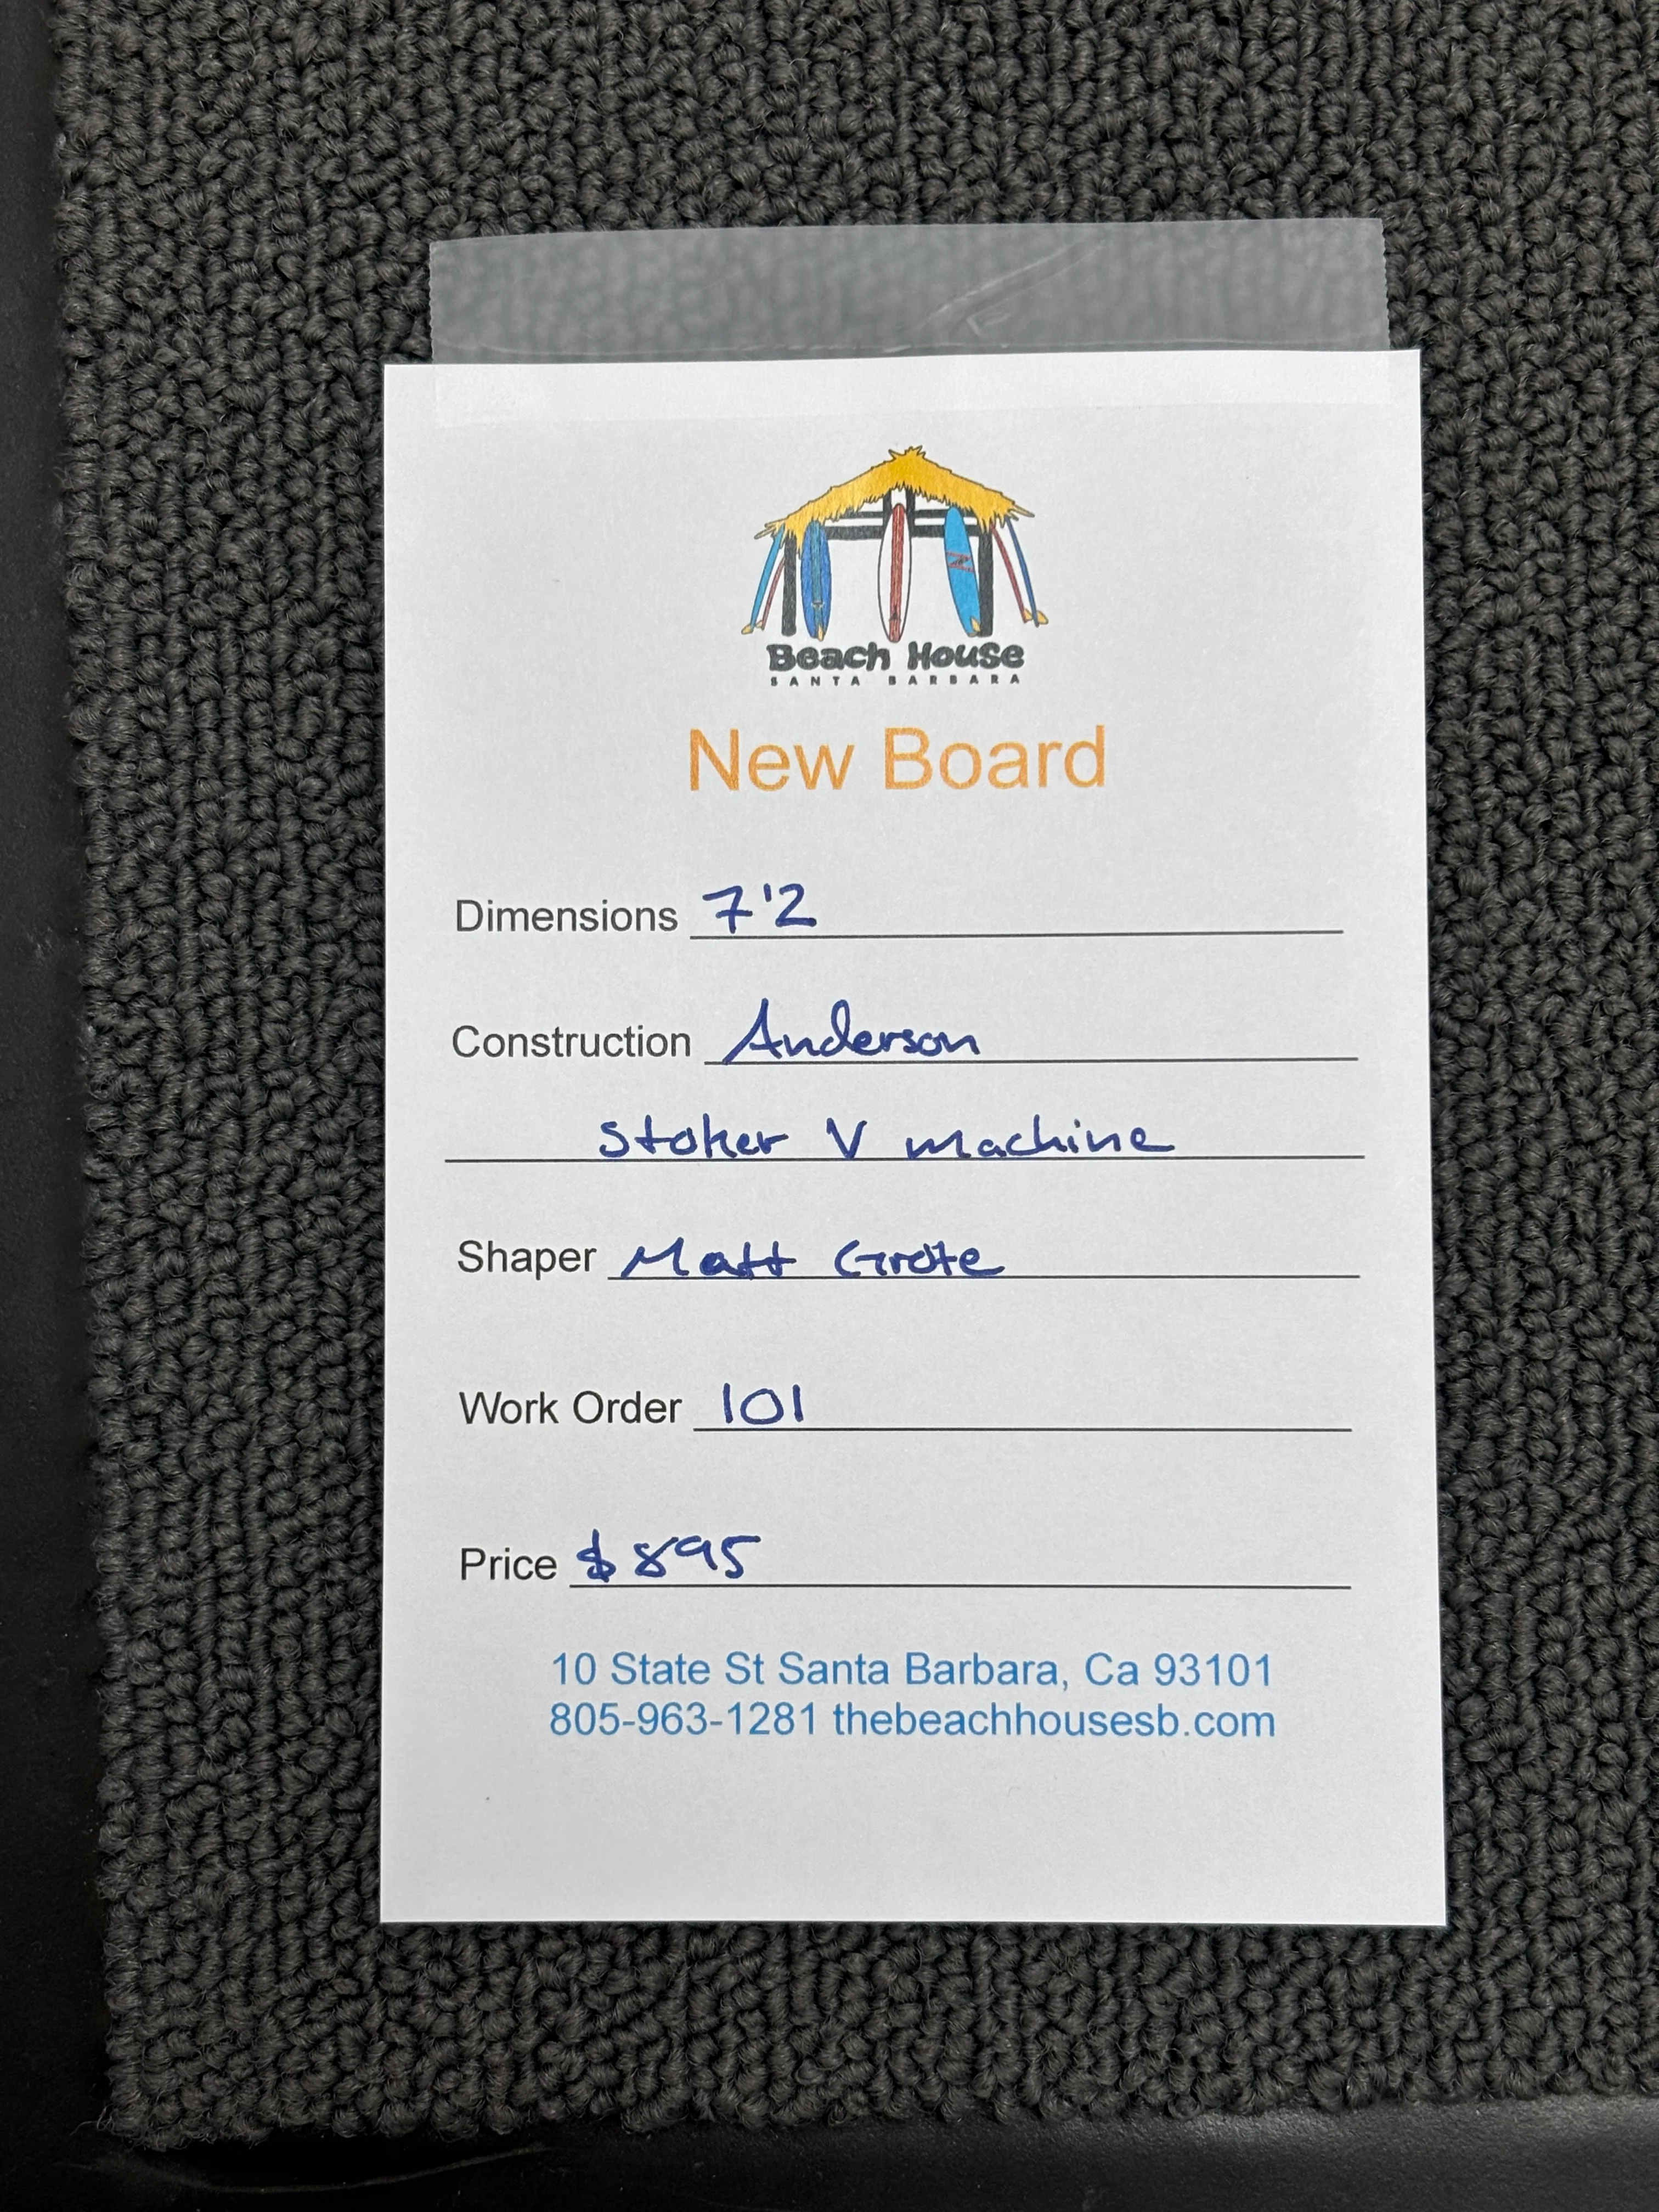 Beach House
SANTA BARBARA
New Board
Dimensions 7'2
Construction Anderson
Stoker V machine
Shaper Matt Grote
Work Order 101
Price $895
10 State St Santa Barbara, Ca 93101
805-963-1281 thebeachhousesb.com